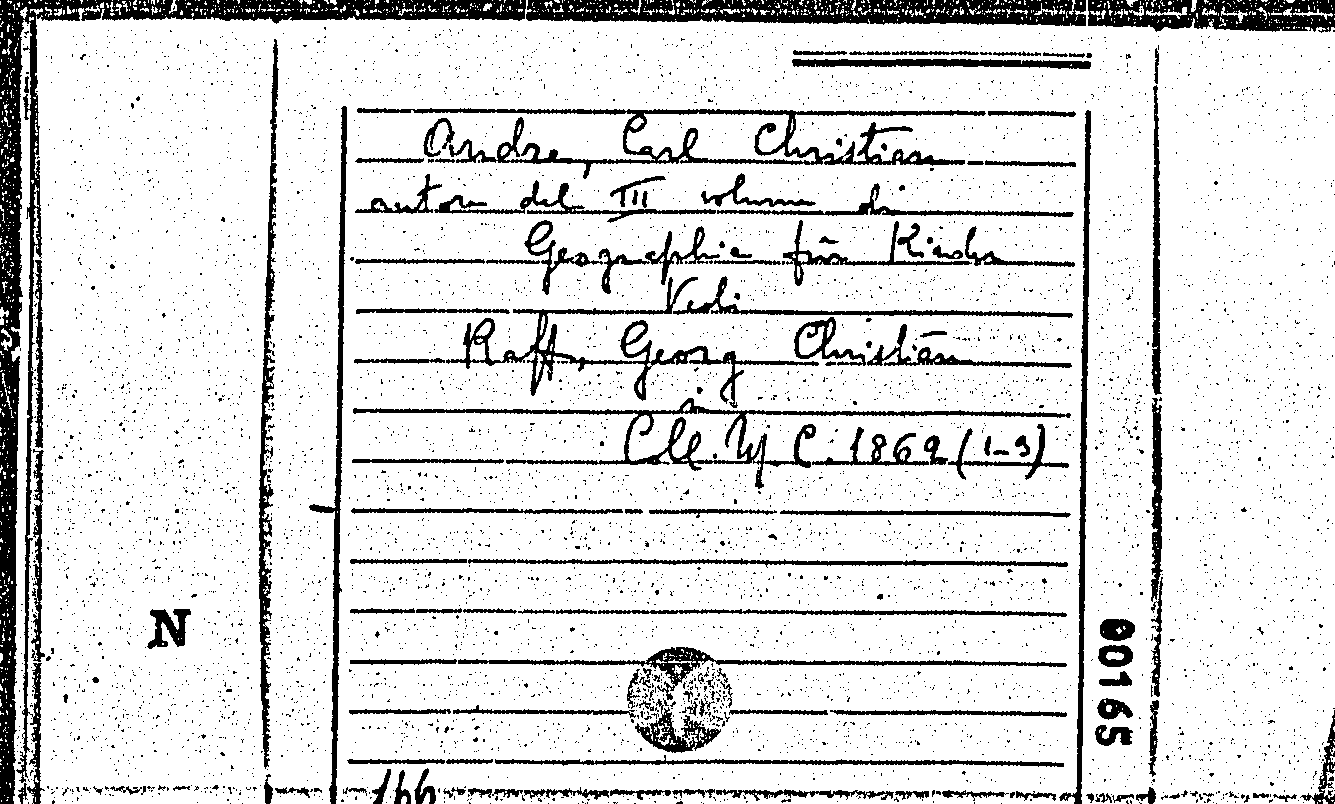 Andre, Carl Christian
autore del III volume di
Geographie für Kinder
Vedi
Raff, Georg Christian
Coll. M C. 1869 (1-3)
N
00165
166